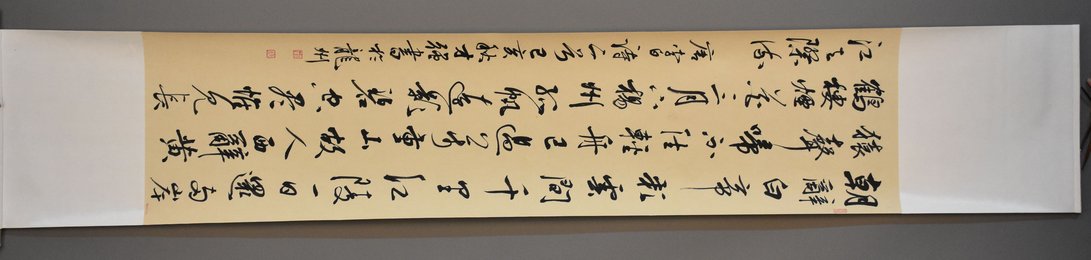 朝辭白帝彩雲間千里江陵一日還兩岸
猿聲啼不住輕舟已過萬重山故人西辭黃
鶴樓煙花三月下揚州孤帆遠影碧空盡惟見長
江天際流唐李白詩二首己亥秋才強書於龍州